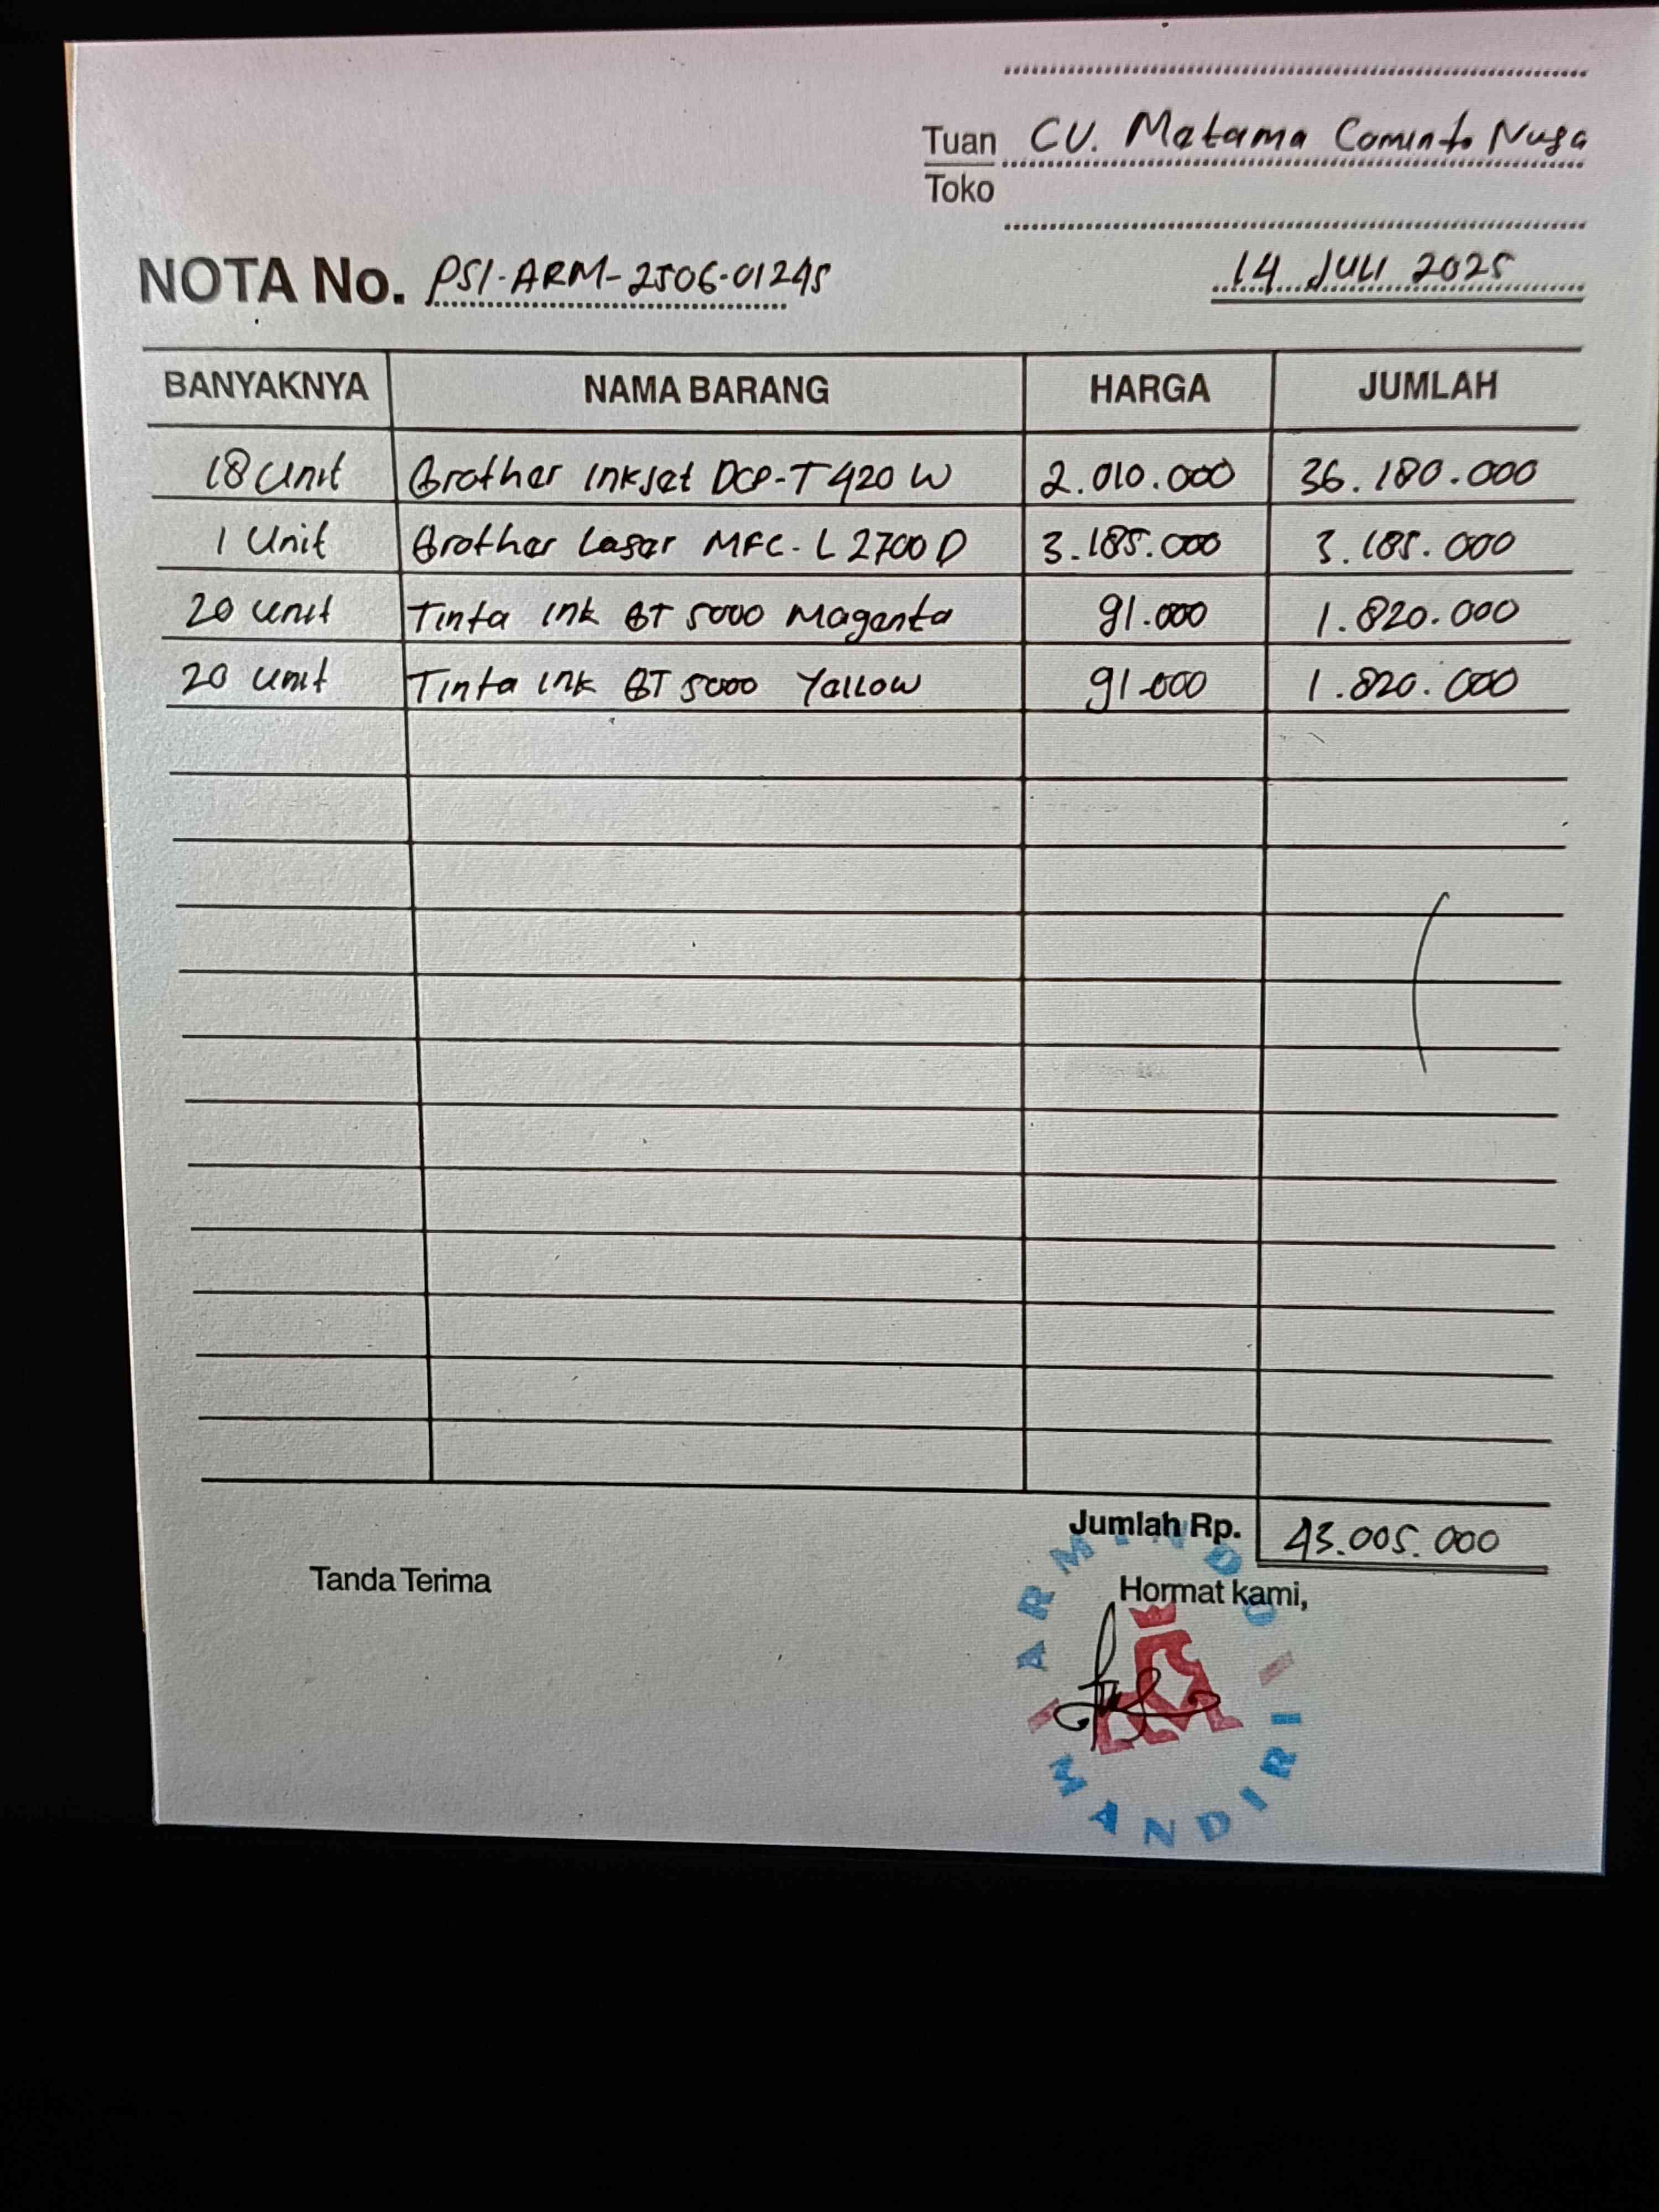 Tuan CV. Metama Cominfo Nusa
Toko
NOTA No. PSI-ARM-2506-01245
14 JULI 2025
BANYAKNYA NAMA BARANG HARGA JUMLAH
18 Unit Brother Inkjet DCP-T420W 2.010.000 36.180.000
1 Unit Brother Laser MFC-L2700D 3.185.000 3.185.000
20 Unit Tinta Ink BT 5000 Magenta 91.000 1.820.000
20 Unit Tinta Ink BT 5000 Yellow 91.000 1.820.000
Jumlah Rp. 43.005.000
Tanda Terima
Hormat kami,
ARMINDO
MANDIRI